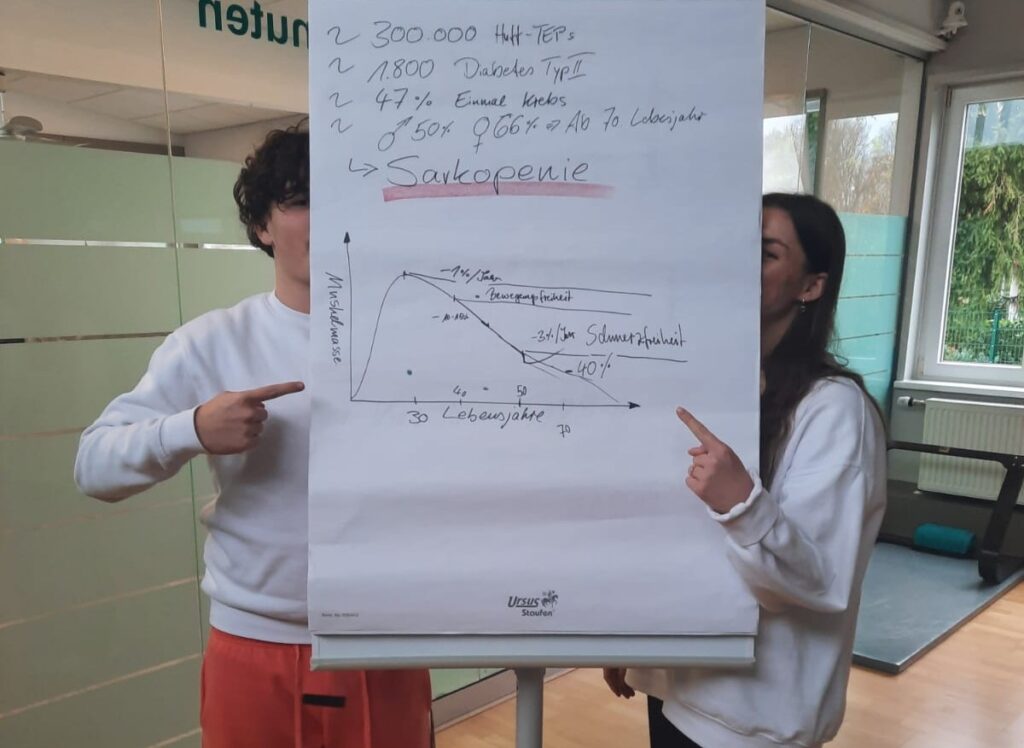 nuten
~ 300.000 Hüft-TEPs
~ 1.800 Diabetes Typ II
~ 47% Einmal Krebs
~ ♂ 50% ♀ 66% ⇒ Ab 70. Lebesjahr
↳ Sarkopenie
Muskelmasse
-1%/Jahr
Bewegungsfreiheit
-3%/Jahr Schmerzfreiheit
40%
30 40 50 70
Lebensjahre
Ursus
Staufen